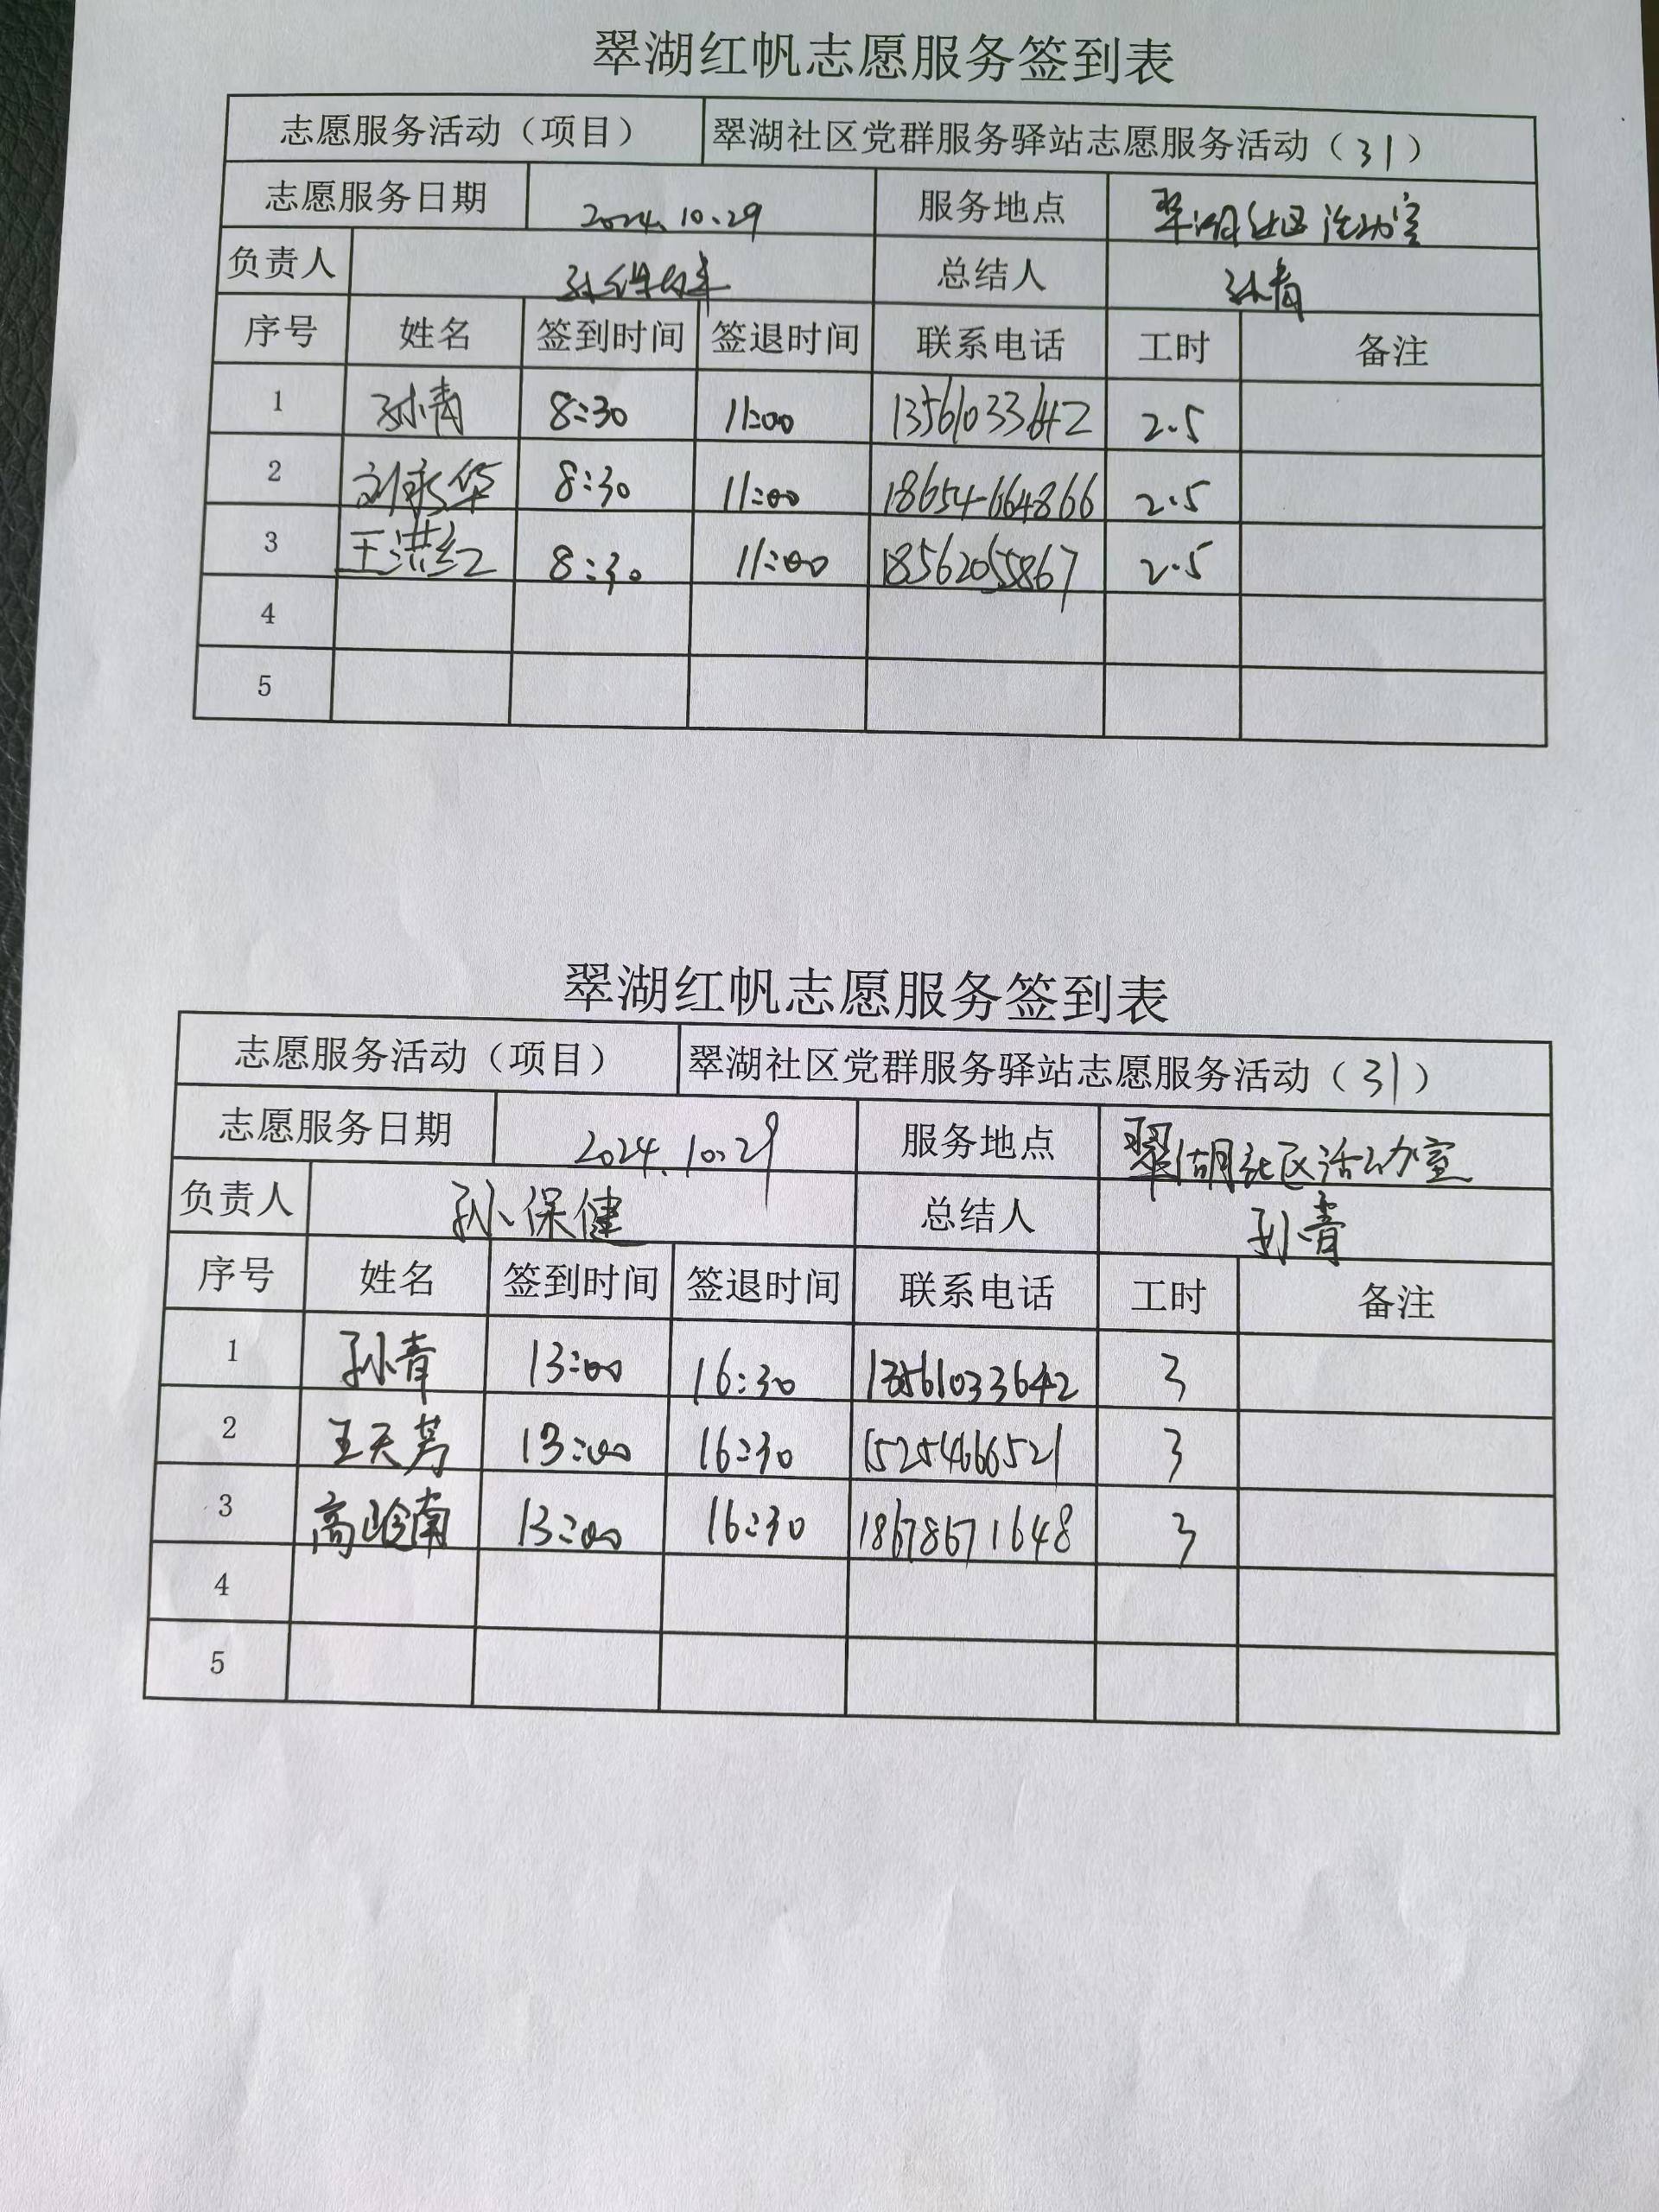 翠湖红帆志愿服务签到表
志愿服务活动（项目） 翠湖社区党群服务驿站志愿服务活动（31）
志愿服务日期 2024.10.29 服务地点 翠湖社区活动室
负责人 孙保健 总结人 孙青
序号 姓名 签到时间 签退时间 联系电话 工时 备注
1 孙青 8:30 11:00 13561033642 2.5
2 刘永华 8:30 11:00 18654664866 2.5
3 王洪红 8:30 11:00 18562055867 2.5
4
5
翠湖红帆志愿服务签到表
志愿服务活动（项目） 翠湖社区党群服务驿站志愿服务活动（31）
志愿服务日期 2024.10.29 服务地点 翠湖社区活动室
负责人 孙保健 总结人 孙青
序号 姓名 签到时间 签退时间 联系电话 工时 备注
1 孙青 13:00 16:30 13561033642 3
2 王天芳 13:00 16:30 15254666521 3
3 高岭南 13:00 16:30 18678671648 3
4
5